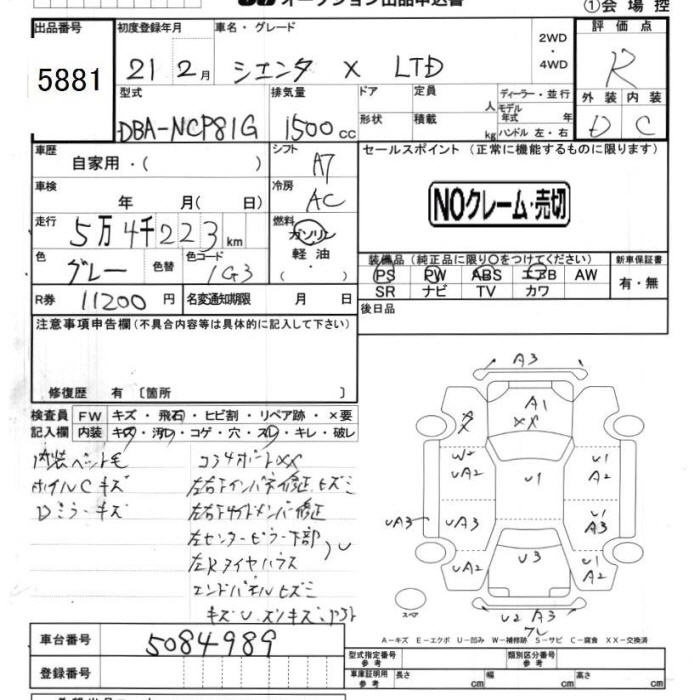 オークション出品申込書
①会場控
出品番号 初度登録年月 車名・グレード 2WD・4WD 評価点
5881 21 2月 シエンタ X LTD R
型式 排気量 ドア 定員 人 ディーラー・並行 外装 内装
DBA-NCP81G 1500cc 形状 積載 kg モデル年式 年 ハンドル 左・右 D C
車歴 シフト セールスポイント (正常に機能するものに限ります)
自家用・( ) A7
NOクレーム・売切
車検 年 月( 日) 冷房 AC
走行 5万4千223km 燃料 ガソリン
色 グレー 色替 色コード 1G3 軽油
・( )
装備品 (純正品に限り○をつけてください) 新車保証書
PS PW ABS エアB AW 有・無
SR ナビ TV カワ
R券 11200円 名変通知期限 月 日 後日品
注意事項申告欄(不具合内容等は具体的に記入して下さい)
修復歴 有 〔箇所 〕
検査員 FW キズ・飛石・ヒビ割・リペア跡・×要
記入欄 内装 キズ・汚レ・コゲ・穴・スレ・キレ・破レ
内装ペット毛 コアサポートXX
ホイルCキズ 左右Fインパネ修正、ヒズミ
Dミラーキズ 左右Fサイドメンバー修正
左センターピラー下部
左Rタイヤハウス U
エンドパネルヒズミ
キズU
A3
A1
XX
W2
UA2 U1 U1
A2
UA3 UA3 U1
A3
UA2 U3 U1
A2
スペア
U2 A3
A-キズ E-エクボ U-凹み W-補修跡 S-サビ C-腐食 XX-交換済
車台番号 5084989
型式指定番号 参考 類別区分番号 参考
登録番号 車庫証明用 参考 長さ cm 幅 cm 高さ cm